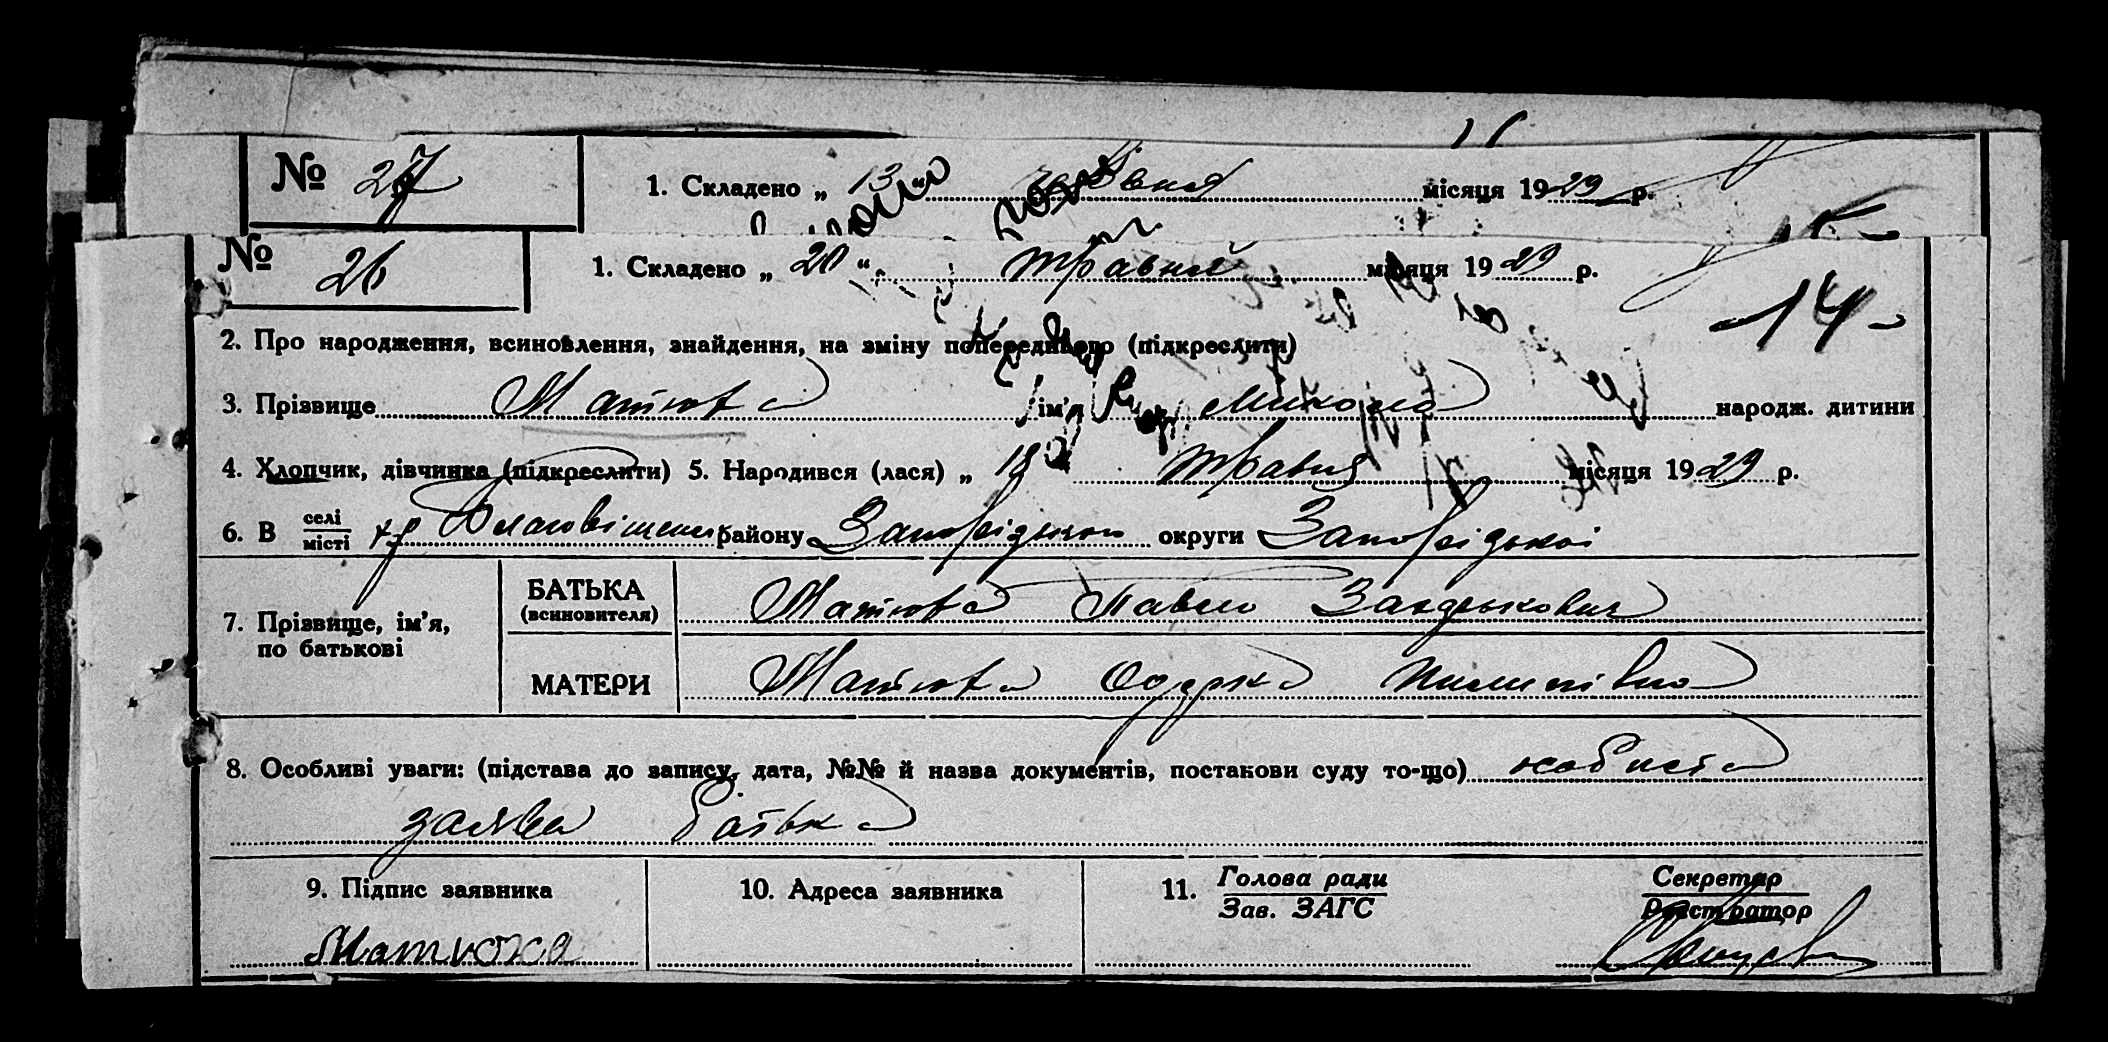 № 27
1. Складено „ 13 “ червня місяця 1929 р.
№ 26
1. Складено „ 20 “ травня місяця 1929 р.
-14-
2. Про народження, всиновлення, знайдення, на зміну попереднього (підкреслити)
3. Прізвище Матюха ім'я Микола народж. дитини
4. Хлопчик, дівчинка (підкреслити) 5. Народився (лася) „ 18 травня місяця 1929 р.
6. В селі місті району Запорізького округи Запорізької
7. Прізвище, ім'я, по батькові
БАТЬКА (всиновителя) Матюха Павло
МАТЕРИ Матюха
8. Особливі уваги: (підстава до запису, дата, №№ й назва документів, постанови суду то-що) особиста
заява батька
9. Підпис заявника
10. Адреса заявника
11. Голова ради
Зав. ЗАГС
Секретар
Реєстратор
Матюха